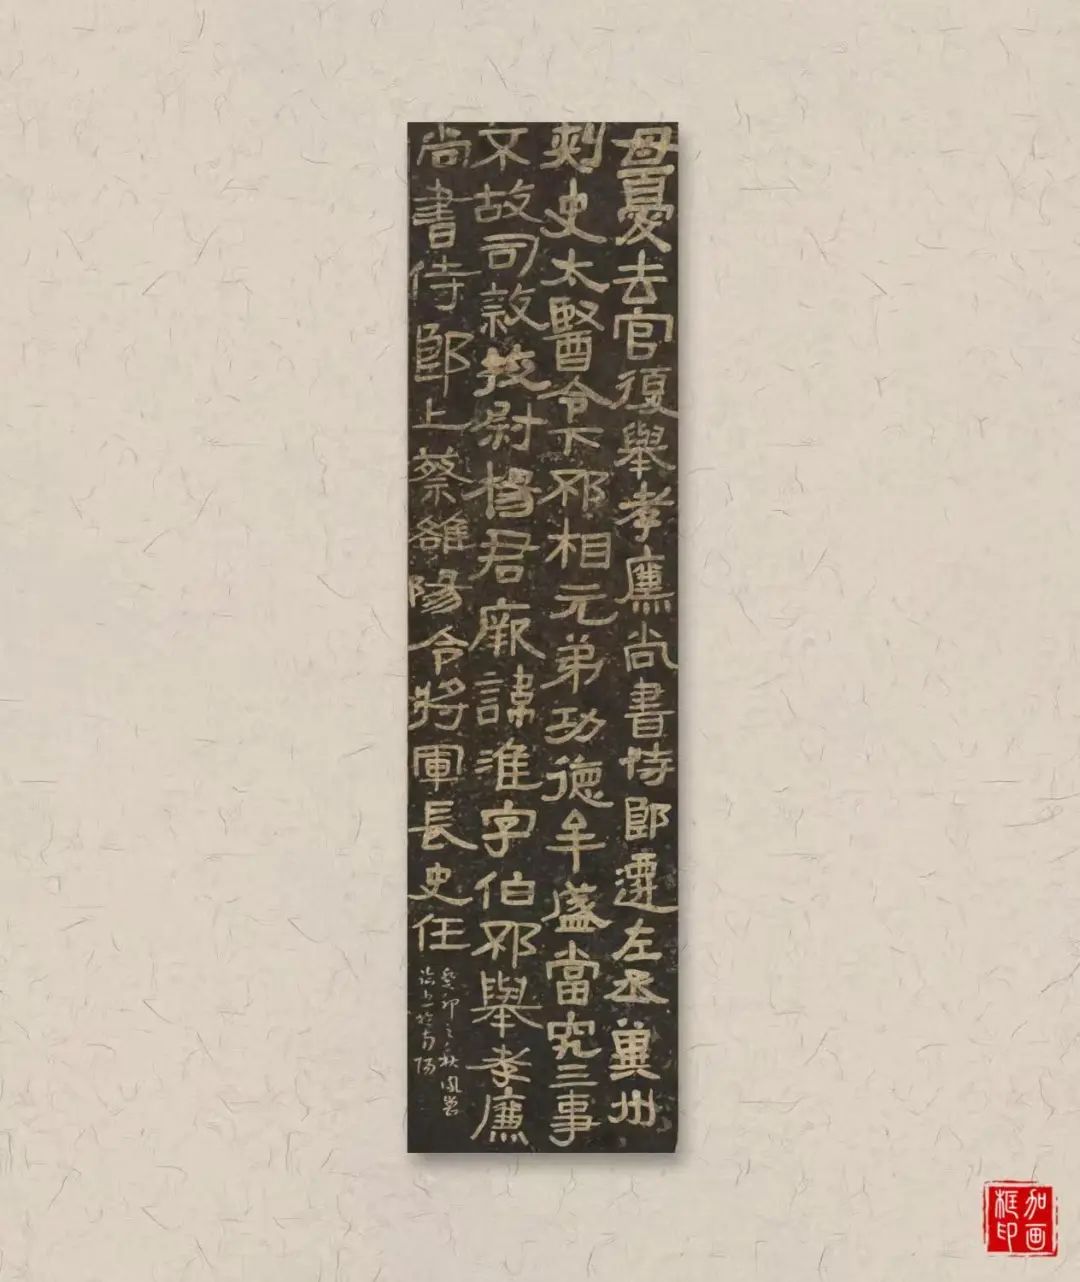 母憂去官復舉孝廉尚書侍郎遷左丞冀州
刺史太醫令下邳相元弟功德牟盛當究三事
不故司隸校尉楊君厥諱淮字伯邳舉孝廉
尚書侍郎上蔡雒陽令將軍長史任
癸卯之秋
於南陽
加画
框印